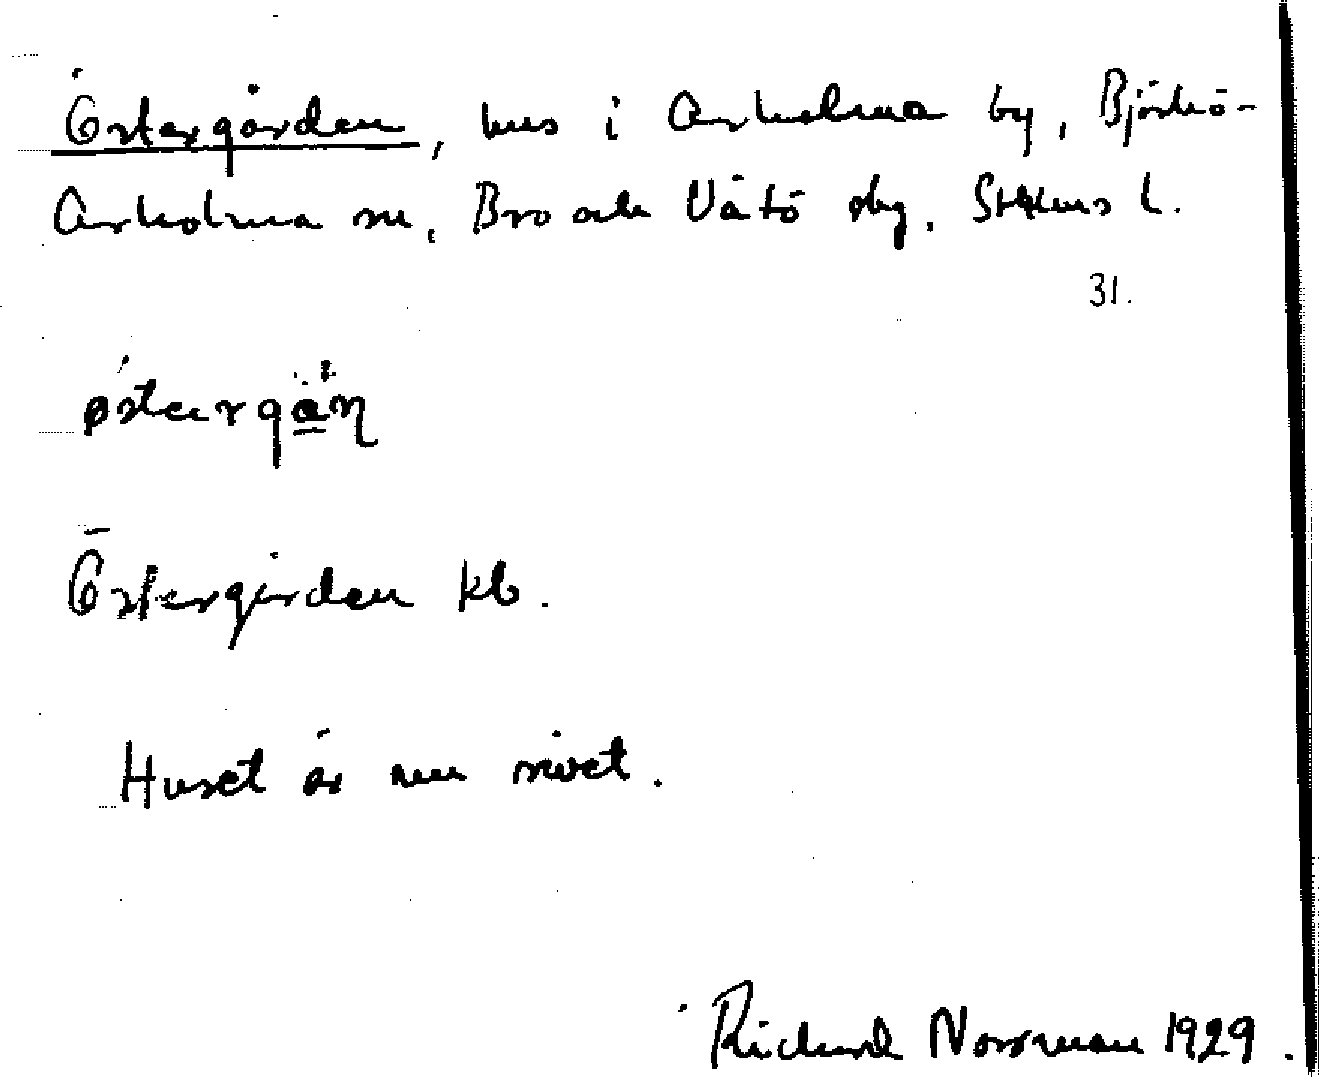 Östergården, hus i Arholma by, Björkö-
Arholma sn, Bro och Vätö skg, Sthlms l.
31.
østergän
Östergården kb.
Huset är nu rivet.
Richard Norrman 1929.